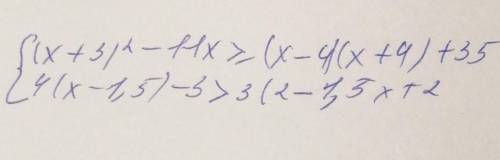 {(x+3)² - 11x ≥ (x-4)(x+4)+35
4(x-1,5)-3>3(2-1,5x+2